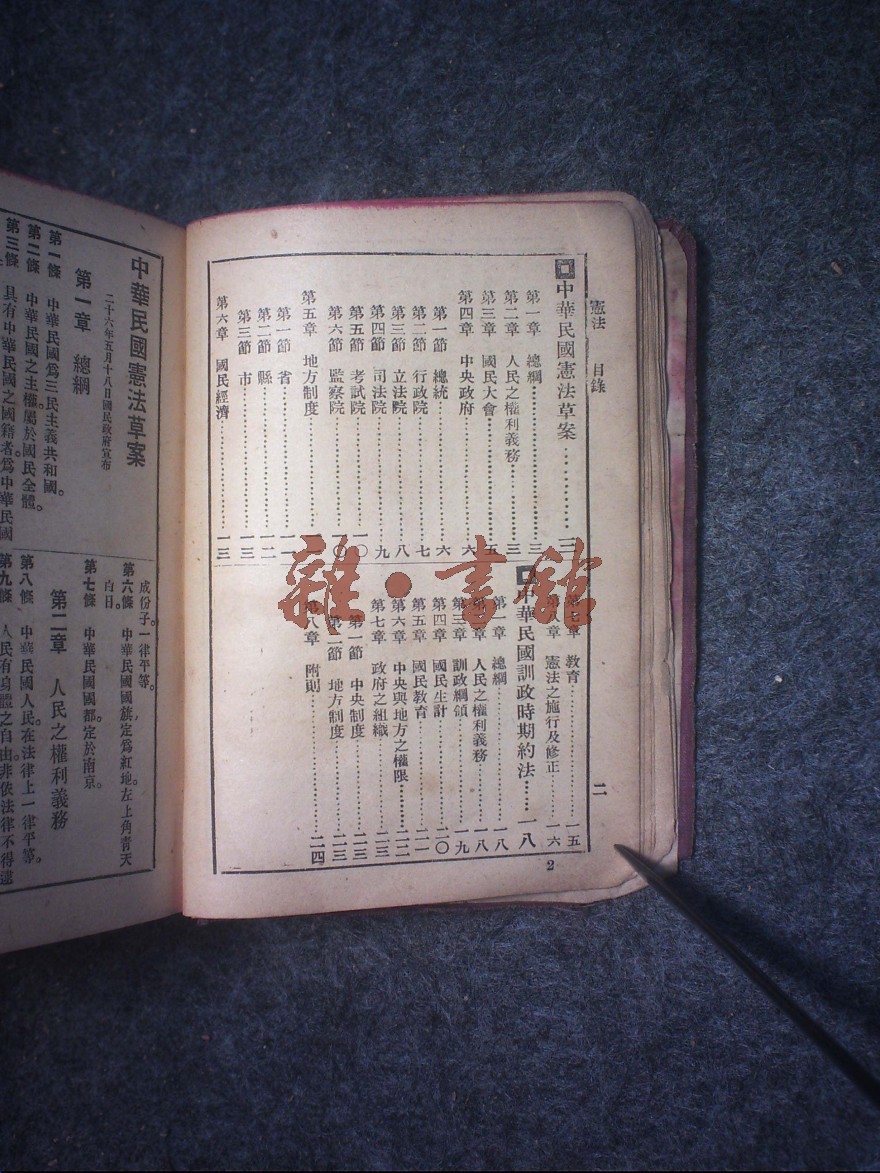 憲法 目錄 二
中華民國憲法草案…………三
第一章 總綱…………三
第二章 人民之權利義務…………三
第三章 國民大會…………五
第四章 中央政府…………六
第一節 總統…………六
第二節 行政院…………七
第三節 立法院…………八
第四節 司法院…………九
第五節 考試院…………一〇
第六節 監察院…………一〇
第五章 地方制度…………
第一節 省…………一一
第二節 縣…………一二
第三節 市…………一三
第六章 國民經濟…………一三
第七章 教育…………一五
第八章 憲法之施行及修正…………一六
華民國訓政時期約法……一八
第一章 總綱…………一八
第二章 人民之權利義務…………一八
第三章 訓政綱領…………一九
第四章 國民生計…………二〇
第五章 國民教育…………二一
第六章 中央與地方之權限…………二二
第七章 政府之組織…………二三
第一節 中央制度…………二三
第二節 地方制度…………二三
第八章 附則…………二四
2
雜·書館
中華民國憲法草案
二十六年五月十八日國民政府宣布
第一章 總綱
第一條 中華民國爲三民主義共和國。
第二條 中華民國之主權屬於國民全體。
第三條 具有中華民國之國籍者爲中華民國
成份子。一律平等。
第六條 中華民國國旗定爲紅地左上角青天
白日。
第七條 中華民國國都定於南京。
第二章 人民之權利義務
第八條 中華民國人民在法律上一律平等。
第九條 人民有身體之自由非依法律不得逮